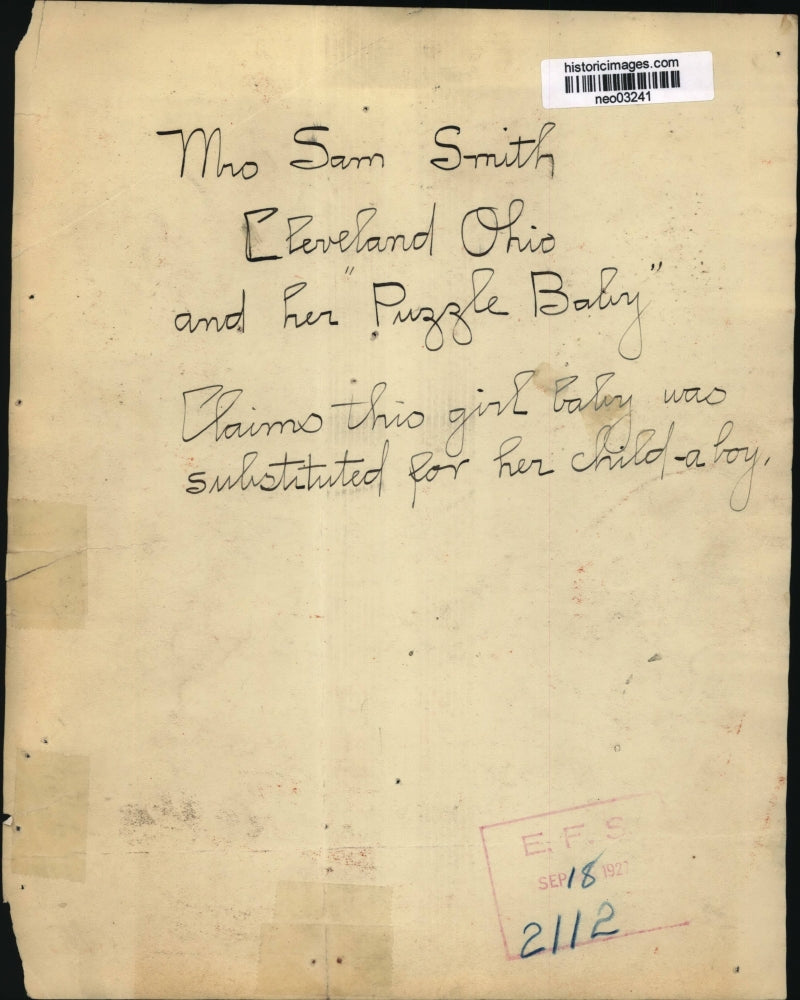 historicimages.com
neo03241
Mrs Sam Smith
Cleveland Ohio
and her "Puzzle Baby"
Claims this girl baby was
substituted for her child-a boy.
E. F. S
SEP 18 1927
2112